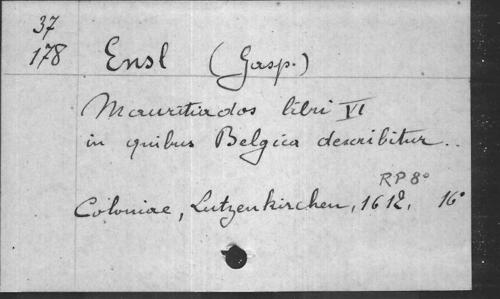 37
178 Ensl (Gasp.)
Mauritiados libri VI
in quibus Belgica describitur..
RP 8°
Coloniae, Lutzenkirchen, 1612, 16°